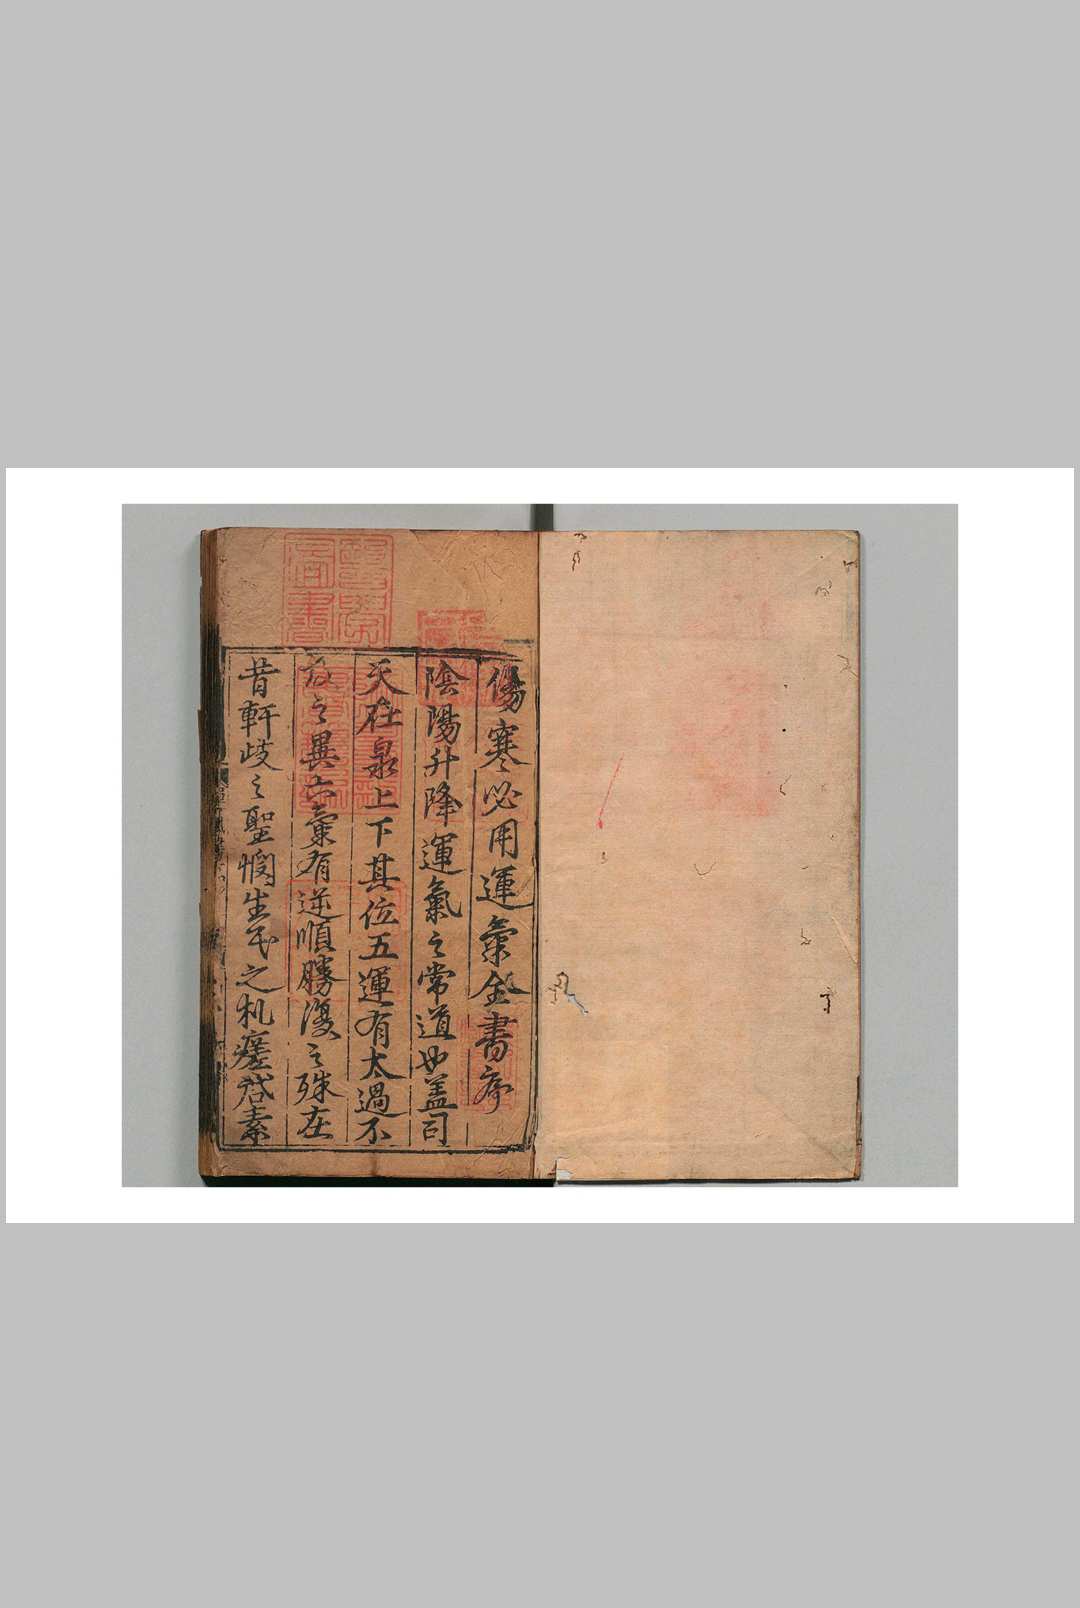 傷寒必用運氣全書序
陰陽升降運氣之常道也蓋司
天在泉上下其位五運有太過不
及之異六氣有逆順勝復之殊在
昔軒歧之聖憫生民之札瘥啓素